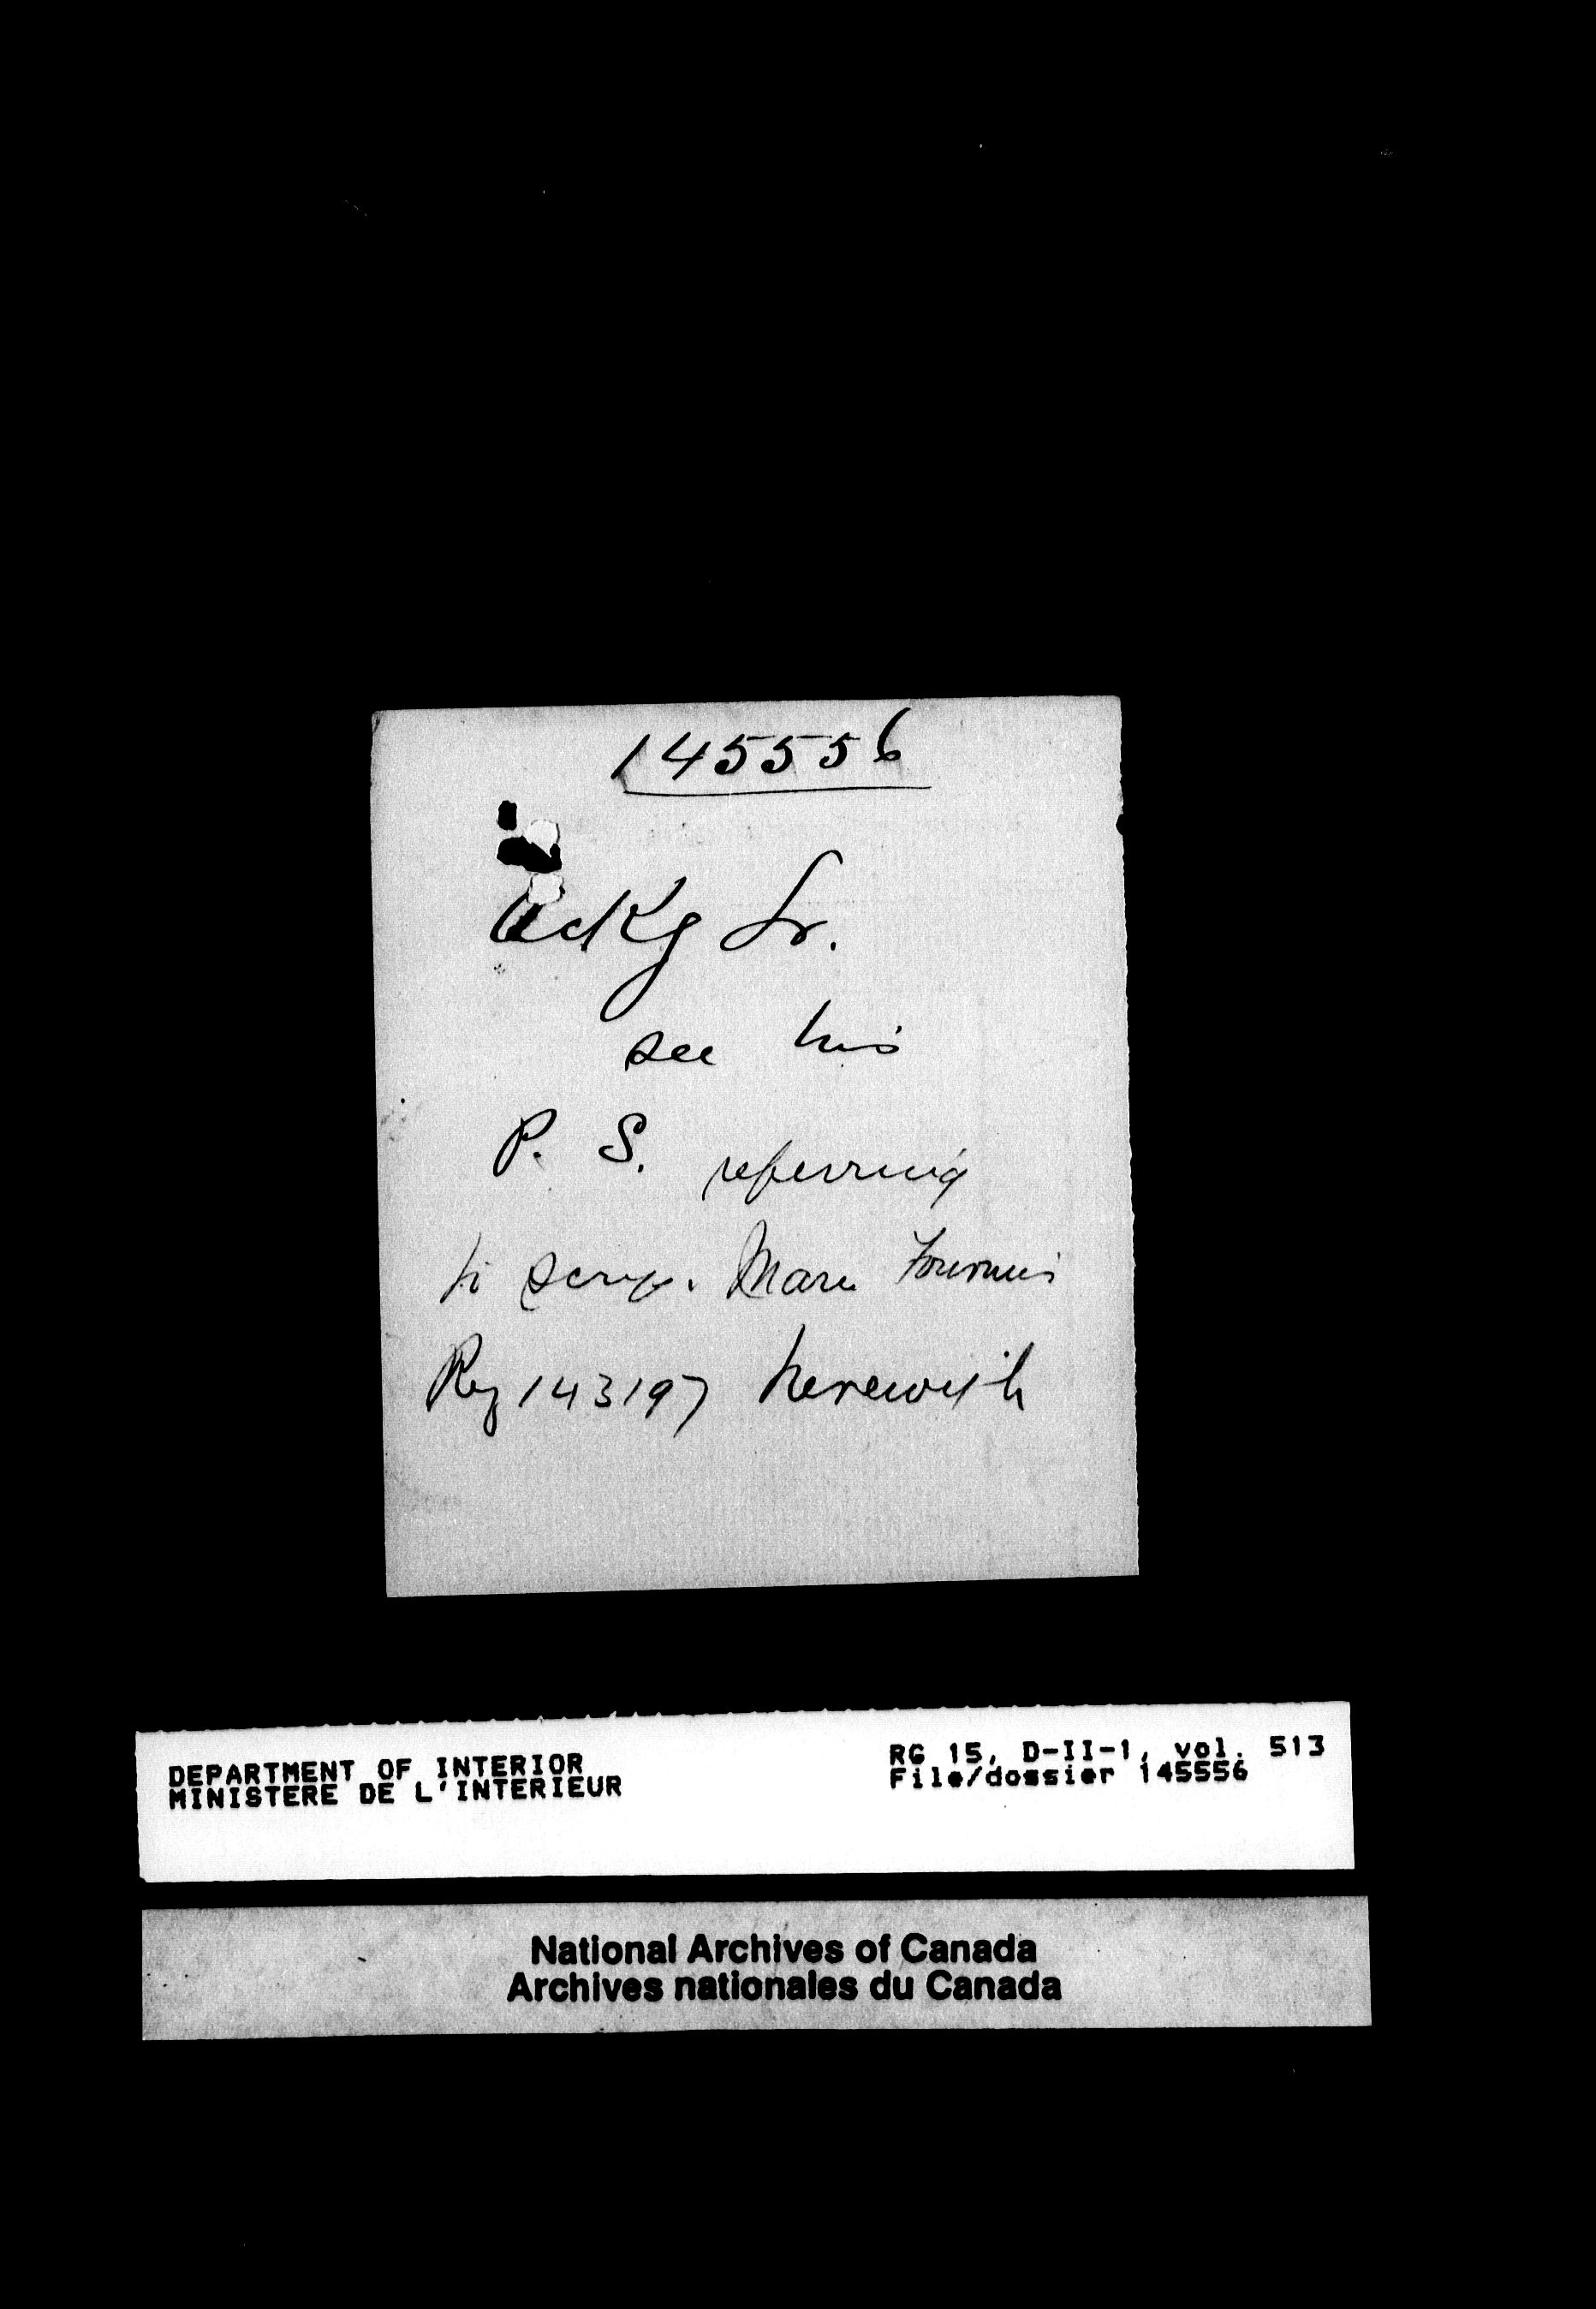 145556
Ackg Lr.
see his
P. S. referring
to scrip. Marie Fournier
Reg 143197 herewith
DEPARTMENT OF INTERIOR
MINISTERE DE L'INTERIEUR
RG 15, D-II-1, vol. 513
File/dossier 145556
National Archives of Canada
Archives nationales du Canada